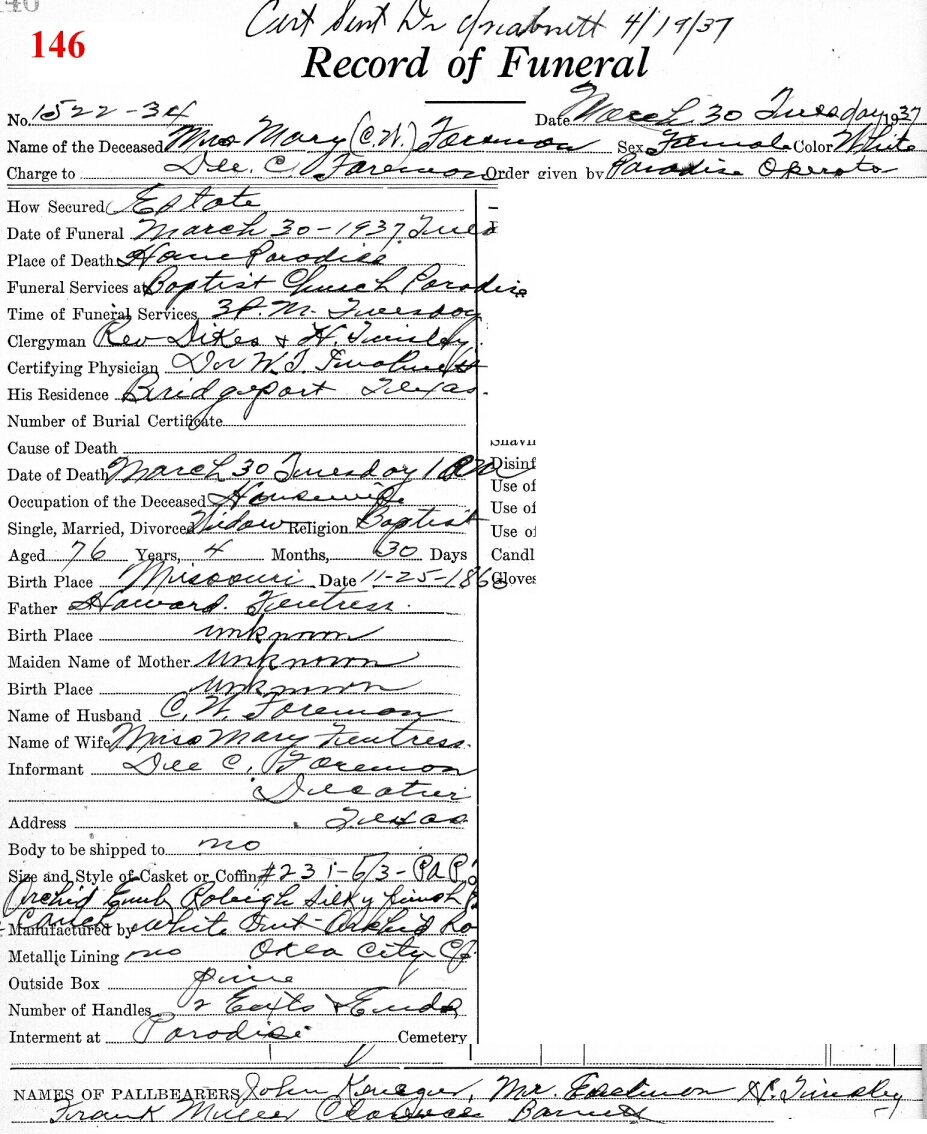 146
Cert Sent Dr 4/19/37
Record of Funeral
No. 1522-34 Date March 30 Tuesday 1937
Name of the Deceased Mrs Mary (C.W.) Foremon Sex Female Color White
Charge to Dee. C. Foremon Order given by Paradise Operator
How Secured Estate
Date of Funeral March 30-1937 Tues
Place of Death Home Paradise
Funeral Services at Baptist Church Paradise
Time of Funeral Services 3 P.M. Tuesday
Clergyman Rev Dikes & H. Tinsley
Certifying Physician Dr W.
His Residence Bridgeport Texas.
Number of Burial Certificate
Cause of Death
Date of Death March 30 Tuesday 1
Disinf
Use of
Occupation of the Deceased Housewife
Use of
Single, Married, Divorced Widow Religion Baptist
Use of
Aged 76 Years, 4 Months, 30 Days
Candl
Birth Place Missouri Date 11-25-186
Gloves
Father Howard. Fentress.
Birth Place unknown
Maiden Name of Mother Unknown
Birth Place unknown
Name of Husband C. W. Foremon
Name of Wife Miss Mary Fentress.
Informant Dee C. Foremon
Decatur
Address Texas
Body to be shipped to no
Size and Style of Casket or Coffin #231-6/3-
Orchid Emb Raleigh Silky finish
Couch White Orchid
Manufactured by
Metallic Lining no Okla City
Outside Box pine
Number of Handles 2 Exts & Ends
Interment at Paradise Cemetery
NAMES OF PALLBEARERS John Krueger, Mr. H. Tinsley
Frank Miller Clarence Barnett